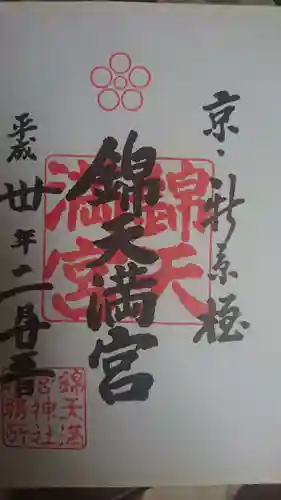 京・新京極
錦天満宮
平成卅年二月廿三日
錦天満宮
錦天満
宮神社